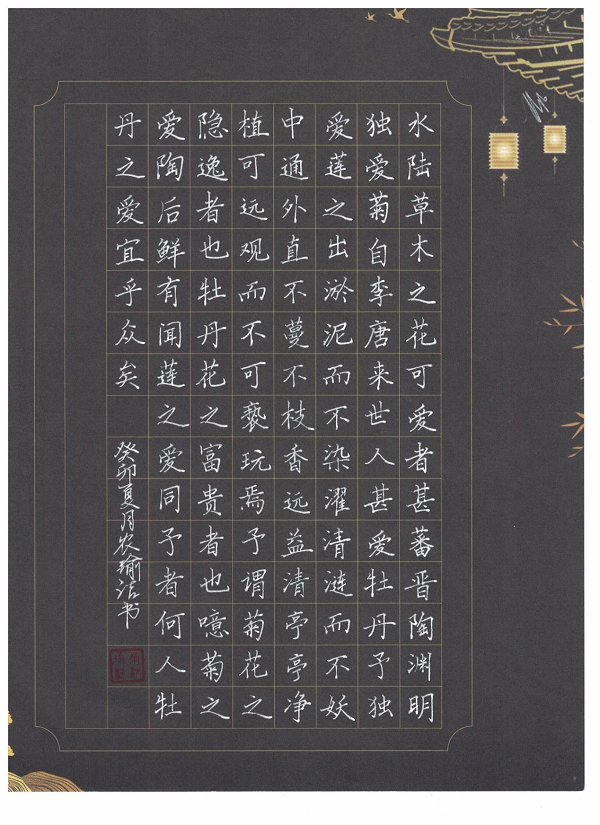 水陆草木之花可爱者甚蕃晋陶渊明
独爱菊自李唐来世人甚爱牡丹予独
爱莲之出淤泥而不染濯清涟而不妖
中通外直不蔓不枝香远益清亭亭净
植可远观而不可亵玩焉予谓菊花之
隐逸者也牡丹花之富贵者也噫菊之
爱陶后鲜有闻莲之爱同予者何人牡
丹之爱宜乎众矣
癸卯夏月农瑜洁书